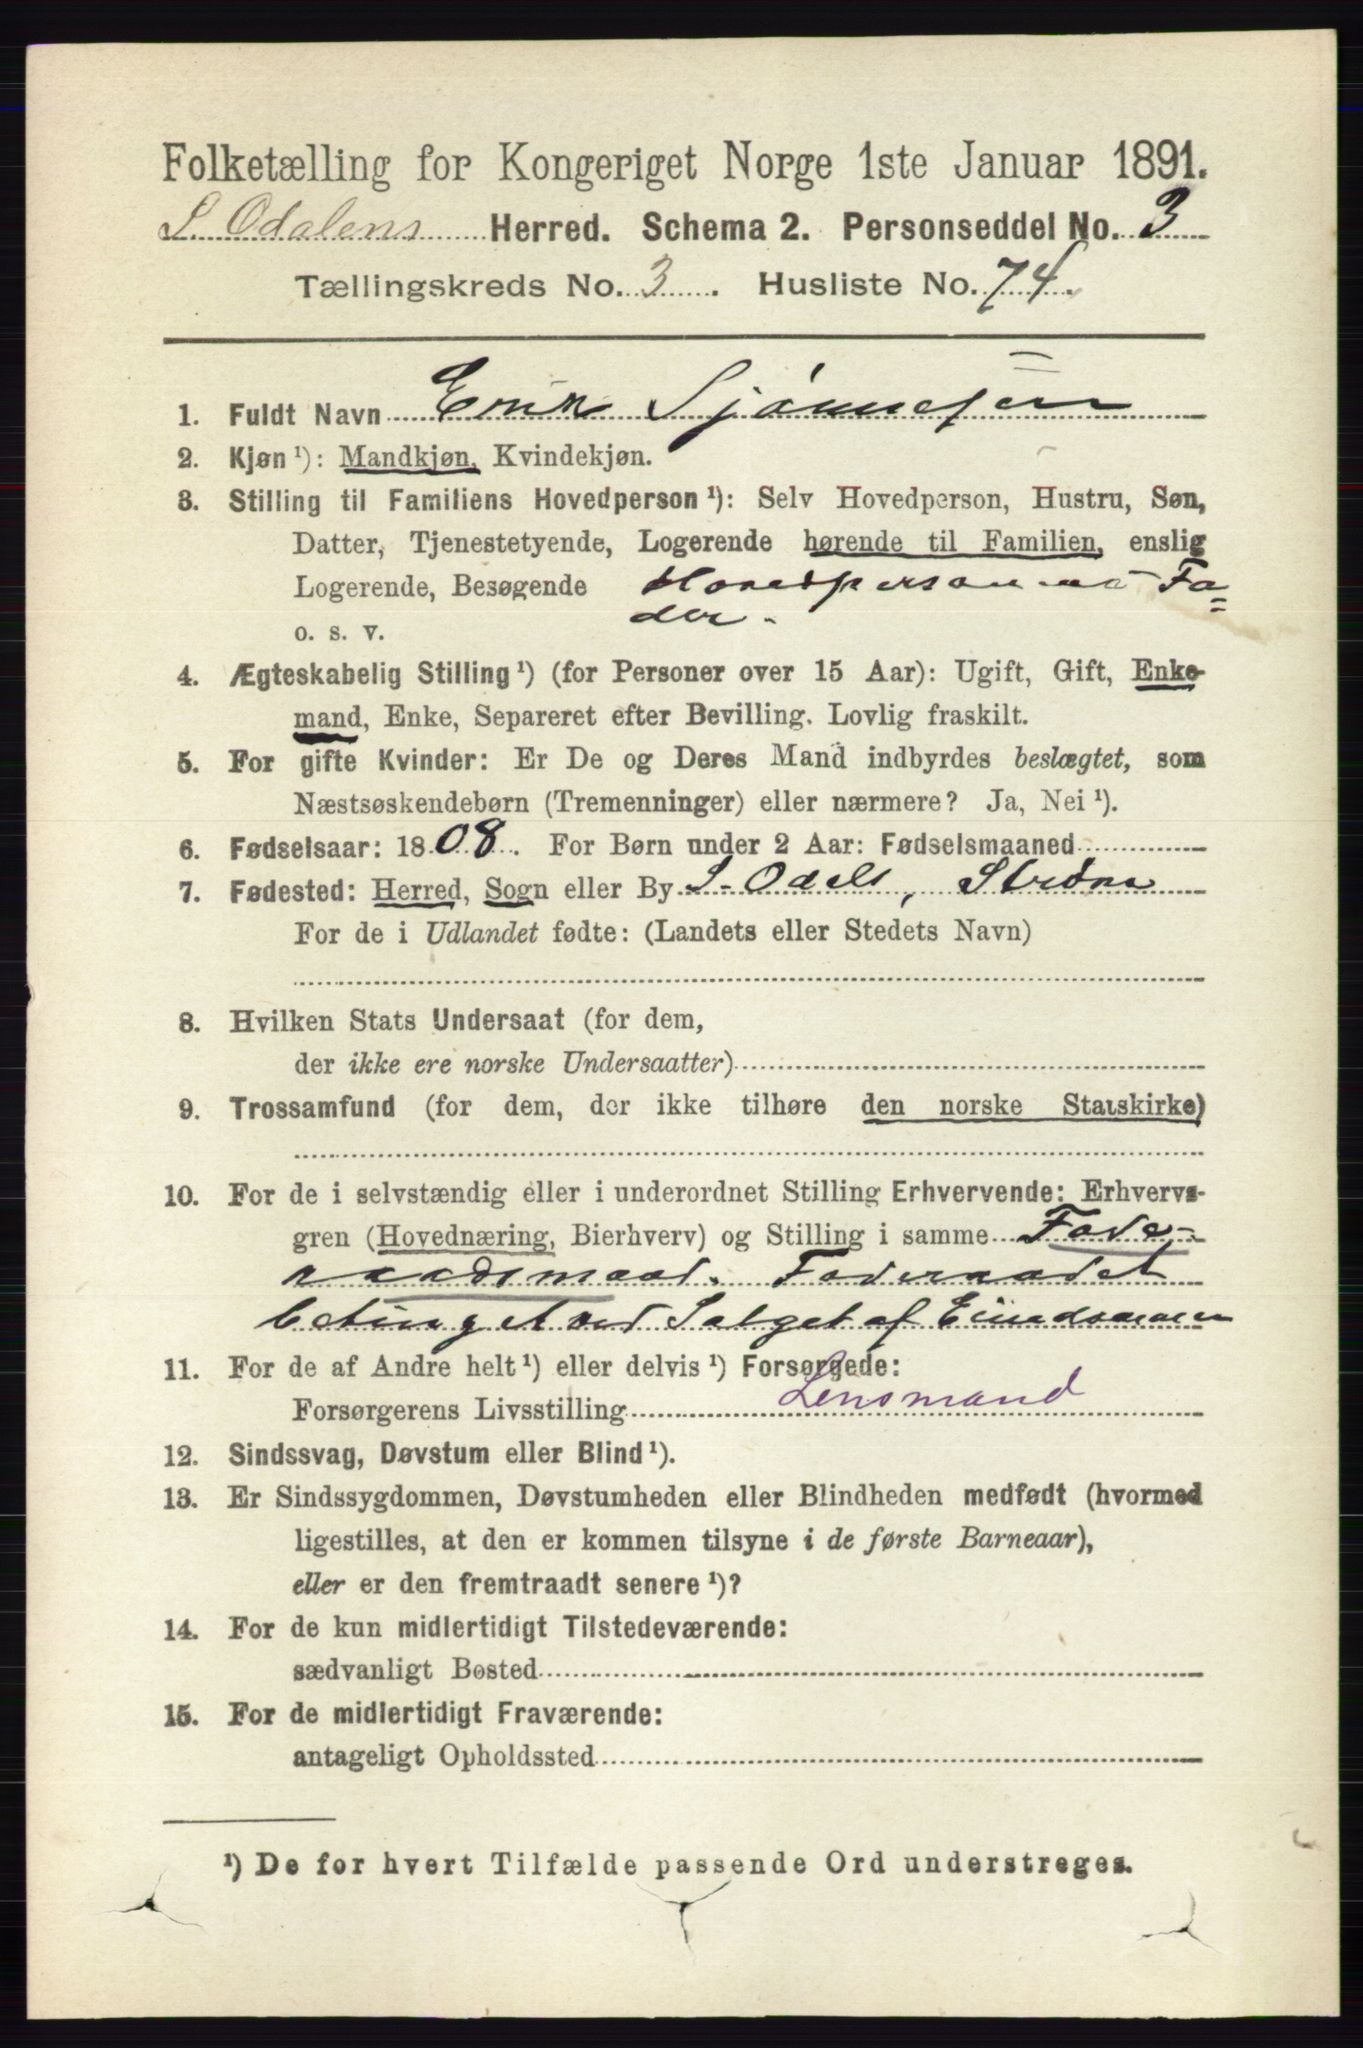 Folketælling for Kongeriget Norge 1ste Januar 1891.
S. Odalens Herred. Schema 2. Personseddel No. 3
Tællingskreds No. 3. Husliste No. 74.
1. Fuldt Navn Erik
2. Kjøn ¹): Mandkjøn, Kvindekjøn.
3. Stilling til Familiens Hovedperson ¹): Selv Hovedperson, Hustru, Søn,
Datter, Tjenestetyende, Logerende hørende til Familien, enslig
Logerende, Besøgende Hovedpersonens Fa=
o. s. v. der.
4. Ægteskabelig Stilling ¹) (for Personer over 15 Aar): Ugift, Gift, Enke-
mand, Enke, Separeret efter Bevilling. Lovlig fraskilt.
5. For gifte Kvinder: Er De og Deres Mand indbyrdes beslægtet, som
Næstsøskendebørn (Tremenninger) eller nærmere? Ja, Nei ¹).
6. Fødselsaar: 1808. For Børn under 2 Aar: Fødselsmaaned
7. Fødested: Herred, Sogn eller By S. Odals, Strøms
For de i Udlandet fødte: (Landets eller Stedets Navn)
8. Hvilken Stats Undersaat (for dem,
der ikke ere norske Undersaatter)
9. Trossamfund (for dem, der ikke tilhøre den norske Statskirke)
10. For de i selvstændig eller i underordnet Stilling Erhvervende: Erhvervs-
gren (Hovednæring, Bierhverv) og Stilling i samme Fode-
raadsmand. Foderaadet
betinget ved Salget af Eiendommen
11. For de af Andre helt ¹) eller delvis ¹) Forsørgede:
Forsørgerens Livsstilling Lensmand
12. Sindssvag, Døvstum eller Blind ¹).
13. Er Sindssygdommen, Døvstumheden eller Blindheden medfødt (hvormed
ligestilles, at den er kommen tilsyne i de første Barneaar),
eller er den fremtraadt senere ¹)?
14. For de kun midlertidigt Tilstedeværende:
sædvanligt Bosted
15. For de midlertidigt Fraværende:
antageligt Opholdssted
¹) De for hvert Tilfælde passende Ord understreges.